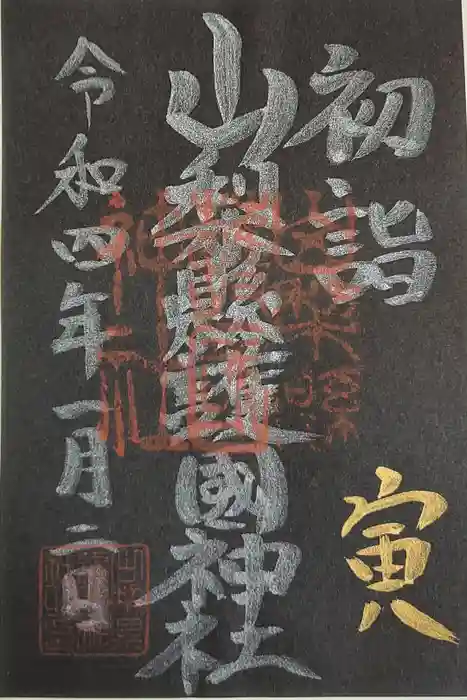 初詣
寅
山梨縣護國神社
令和四年一月二日